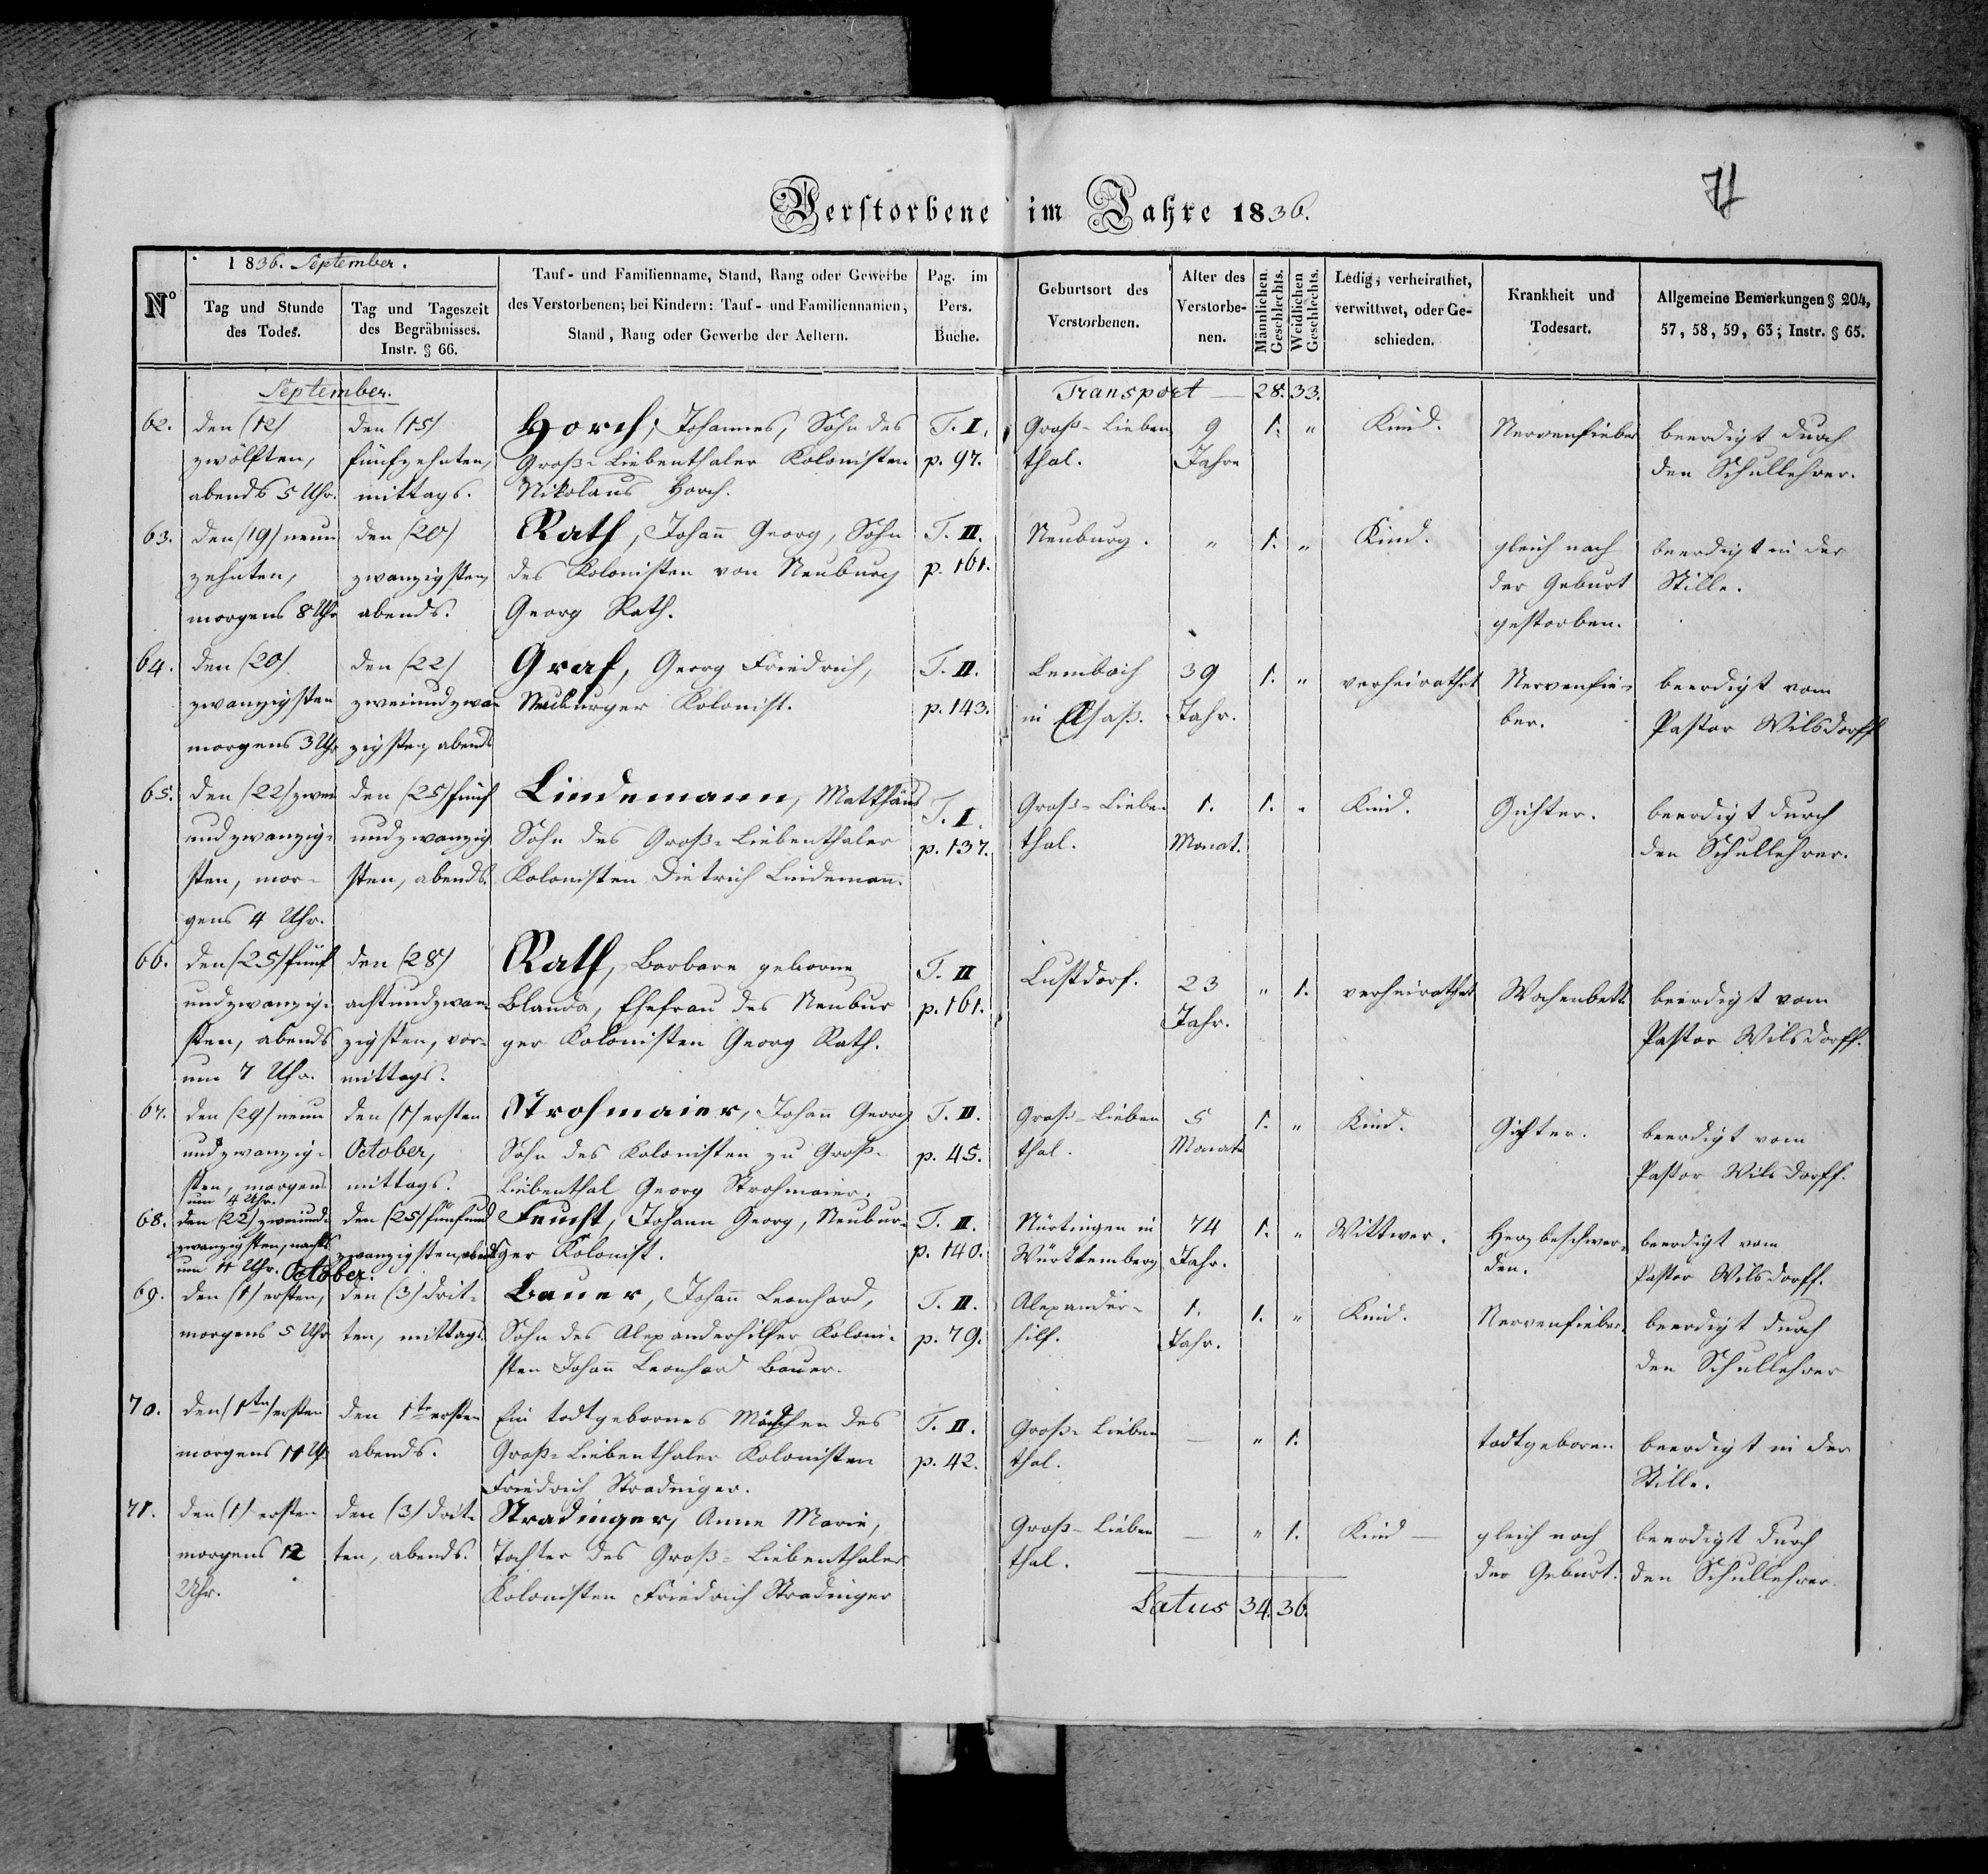 Verstorbene im Jahre 1836.
1836. September.
No
Tag und Stunde
des Todes.
Tag und Tageszeit
des Begräbnisses.
Instr. § 66.
Tauf- und Familienname, Stand, Rang oder Gewerbe
des Verstorbenen; bei Kindern: Tauf- und Familiennamen,
Stand, Rang oder Gewerbe der Aeltern.
Pag. im
Pers.
Buche.
Geburtsort des
Verstorbenen.
Alter des
Verstorbe-
nen.
Männlichen
Geschlechts.
Weidlichen
Geschlechts.
Ledig, verheirathet,
verwittwet, oder Ge-
schieden.
Krankheit und
Todesart.
Allgemeine Bemerkungen § 204,
57, 58, 59, 63; Instr. § 65.
September.
Transport — 28. 33.
62.
den (12)
zwölften,
abends 5 Uhr.
den (15)
fünfzehnten,
mittags.
Horch, Johannes, Sohn des
Groß-Liebenthaler Kolonisten
Nikolaus Horch.
T. I.
p. 97.
Groß-Lieben
thal.
9
Jahre
1. "
Kind.
Nervenfieber
beerdigt durch
den Schullehrer.
63.
den (19) neun
zehnten,
morgens 8 Uhr
den (20)
zwanzigsten,
abends.
Rath, Johann Georg, Sohn
des Kolonisten von Neuburg
Georg Rath.
T. II.
p. 161.
Neuburg.
"
1. "
Kind.
gleich nach
der Geburt
gestorben.
beerdigt in der
Stille.
64.
den (20)
zwanzigsten
morgens 3 Uhr
den (22)
zweiundzwan
zigsten, abends
Graf, Georg Friedrich,
Neuburger Kolonist.
T. II.
p. 143.
Lembach
in Elsaß.
39
Jahr.
1. "
verheirathet
Nervenfie-
ber.
beerdigt vom
Pastor Wilsdorff
65.
den (22) zwei
undzwanzig-
sten, mor-
gens 4 Uhr.
den (25) fünf
undzwanzig
sten, abends.
Lindemann, Matthäus
Sohn des Groß-Liebenthaler
Kolonisten Dietrich Lindemann.
T. I.
p. 137.
Groß-Lieben
thal.
1.
Monat.
1. "
Kind.
Gichter.
beerdigt durch
den Schullehrer.
66.
den (25) fünf
undzwanzig-
sten, abends
um 7 Uhr.
den (28)
achtundzwan-
zigsten, vor-
mittags.
Rath, Barbara geborne
Blanda, Ehefrau des Neubur
ger Kolonisten Georg Rath.
T. II
p. 161.
Lustdorf.
23
Jahr.
" 1.
verheirathet
Wochenbett.
beerdigt vom
Pastor Wilsdorff.
67.
den (29) neun
undzwanzig-
sten, morgens
um 4 Uhr.
den (1) ersten
October,
mittags.
Strohmaier, Johann Georg
Sohn des Kolonisten zu Groß-
Liebenthal Georg Strohmaier.
T. II.
p. 45.
Groß-Lieben
thal.
5
Monate
1. "
Kind.
Gichter.
beerdigt vom
Pastor Wilsdorff.
68.
den (22) zweiund-
zwanzigsten, nachts
um 11 Uhr.
den (25) fünfund
zwanzigsten, abends
Feucht, Johann Georg, Neubur-
ger Kolonist.
T. II.
p. 140.
Nürtingen in
Württemberg
74
Jahr.
1. "
Wittwer.
Herzbeschwer-
den.
beerdigt vom
Pastor Wilsdorff.
October.
69.
den (1) ersten,
morgens 5 Uhr
den (3) drit-
ten, mittags.
Bauer, Johann Leonhard,
Sohn des Alexanderhilfer Koloni-
sten Johann Leonhard Bauer.
T. II.
p. 79.
Alexander-
hilf.
1.
Jahr.
1. "
Kind.
Nervenfieber.
beerdigt durch
den Schullehrer
70.
den (1ten) ersten
morgens 11 Uhr
den 1te ersten
abends.
Ein todtgebornes Mädchen des
Groß-Liebenthaler Kolonisten
Friedrich Stradinger.
T. II.
p. 42.
Groß-Lieben
thal.
—
" 1.
todtgeboren
beerdigt in der
Stille.
71.
den (1) ersten
morgens 12
Uhr.
den (3) drit-
ten, abends.
Stradinger, Anne Marie,
Tochter des Groß-Liebenthaler
Kolonisten Friedrich Stradinger
Groß-Lieben
thal.
—
" 1.
Kind —
gleich nach
der Geburt.
beerdigt durch
den Schullehrer.
Latus 34. 36.